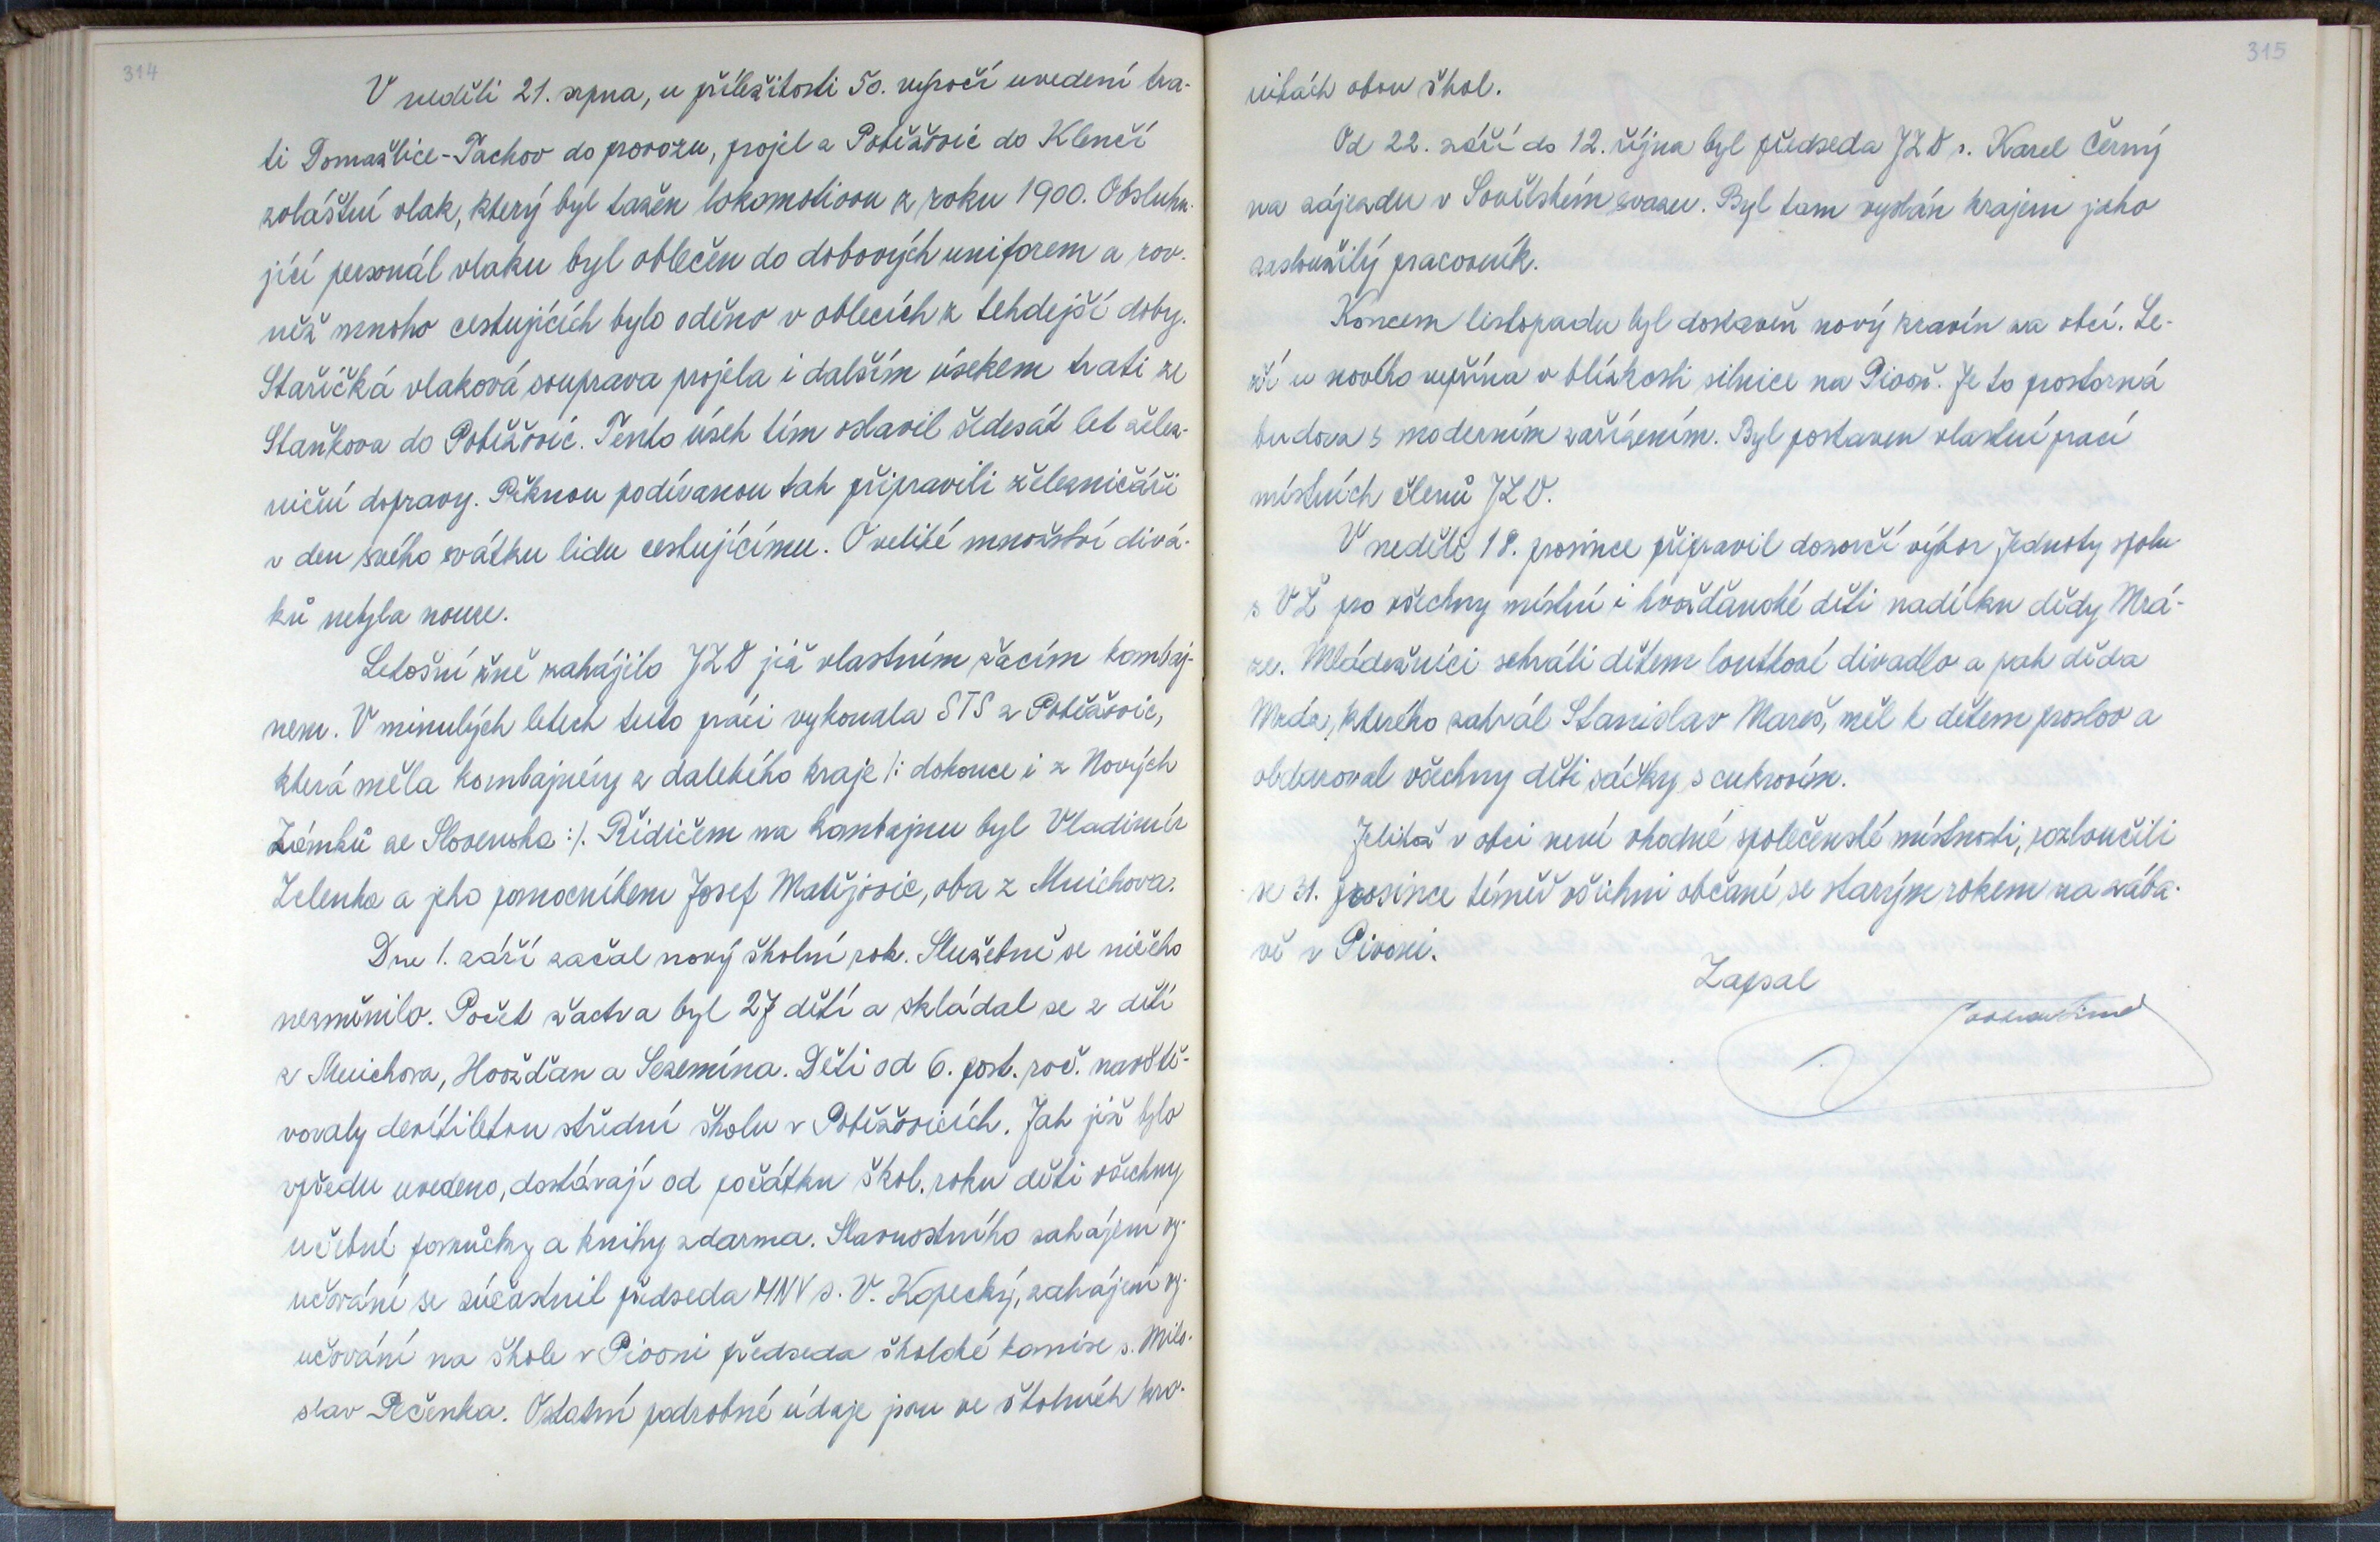 314
V neděli 21. srpna, u příležitosti 50. výročí uvedení tra-
ti Domažlice-Tachov do provozu, projel z Poběžovic do Klenčí
zvláštní vlak, který byl tažen lokomotivou z roku 1900. Obsluhu-
jící personál vlaku byl oblečen do dobových uniforem a rov-
něž mnoho cestujících bylo oděno v oblecích z tehdejší doby.
Stařičká vlaková souprava projela i dalším úsekem trati ze
Staňkova do Poběžovic. Tento úsek tím oslavil šedesát let želez-
niční dopravy. Pěknou podívanou tak připravili železničáři
v den svého svátku lidu cestujícímu. O veliké množství divá-
ků nebyla nouze.
Letošní žně zahájilo JZD již vlastním žacím kombaj-
nem. V minulých letech tuto práci vykonala STS z Poběžovic,
která měla kombajnéry z dalekého kraje /: dokonce i z Nových
Zámků ze Slovenska :/. Řidičem na kombajnu byl Vladimír
Zelenka a jeho pomocníkem Josef Matějovic, oba z Mnichova.
Dne 1. září začal nový školní rok. Služebně se ničeho
nezměnilo. Počet žactva byl 27 dětí a skládal se z dětí
z Mnichova, Hvožďan a Sezemína. Děti od 6. post. roč. navště-
vovaly devítiletou střední školu v Poběžovicích. Jak již bylo
vpředu uvedeno, dostávají od počátku škol. roku děti všechny
učebné pomůcky a knihy zdarma. Slavnostního zahájení vy-
učování se zúčastnil předseda MNV s. V. Kopecký, zahájení vy-
učování na škole v Pivoni předseda školské komise s. Milo-
slav Pečenka. Ostatní podrobné údaje jsou ve školních kro-
315
nikách obou škol.
Od 22. září do 12. října byl předseda JZD s. Karel Černý
na zájezdu v Sovětském svazu. Byl tam vyslán krajem jako
zasloužilý pracovník.
Koncem listopadu byl dostavěn nový kravín za obcí. Le-
ží u nového vepřína v blízkosti silnice na Pivoň. Je to prostorná
budova s moderním zařízením. Byl postaven vlastní prací
místních členů JZD.
V neděli 18. prosince připravil dozorčí výbor Jednoty spolu
s VŽ pro všechny místní i hvožďanské děti nadílku dědy Mrá-
ze. Mládežníci sehráli dětem loutkové divadlo a pak děda
Mráz, kterého zahrál Stanislav Mareš, měl k dětem proslov a
obdaroval všechny děti sáčky s cukrovím.
Jelikož v obci není vhodné společenské místnosti, rozloučili
se 31. prosince téměř všichni občané se starým rokem na zába-
vě v Pivoni.
Zapsal